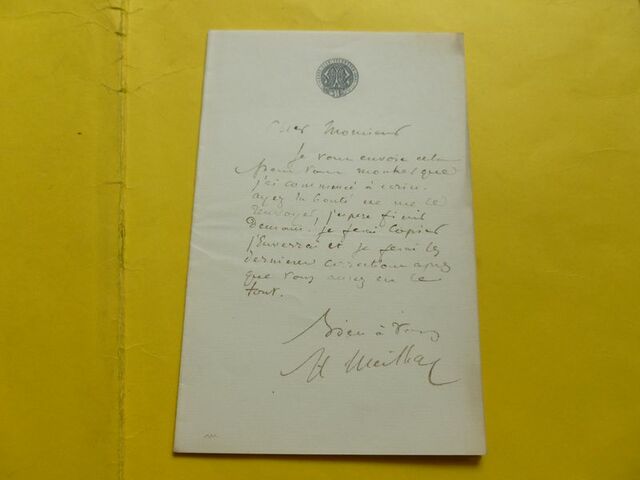 Cher Monsieur
Je vous envoie cela
pour vous montrer que
j'ai commencé à écrire.
ayez la bonté de me le
renvoyer, j'espère finir
Demain. Je ferai copier
j'enverrai et je ferai les
dernières corrections après
que vous aurez eu le
tout.
Bien à vous
H Meilhac